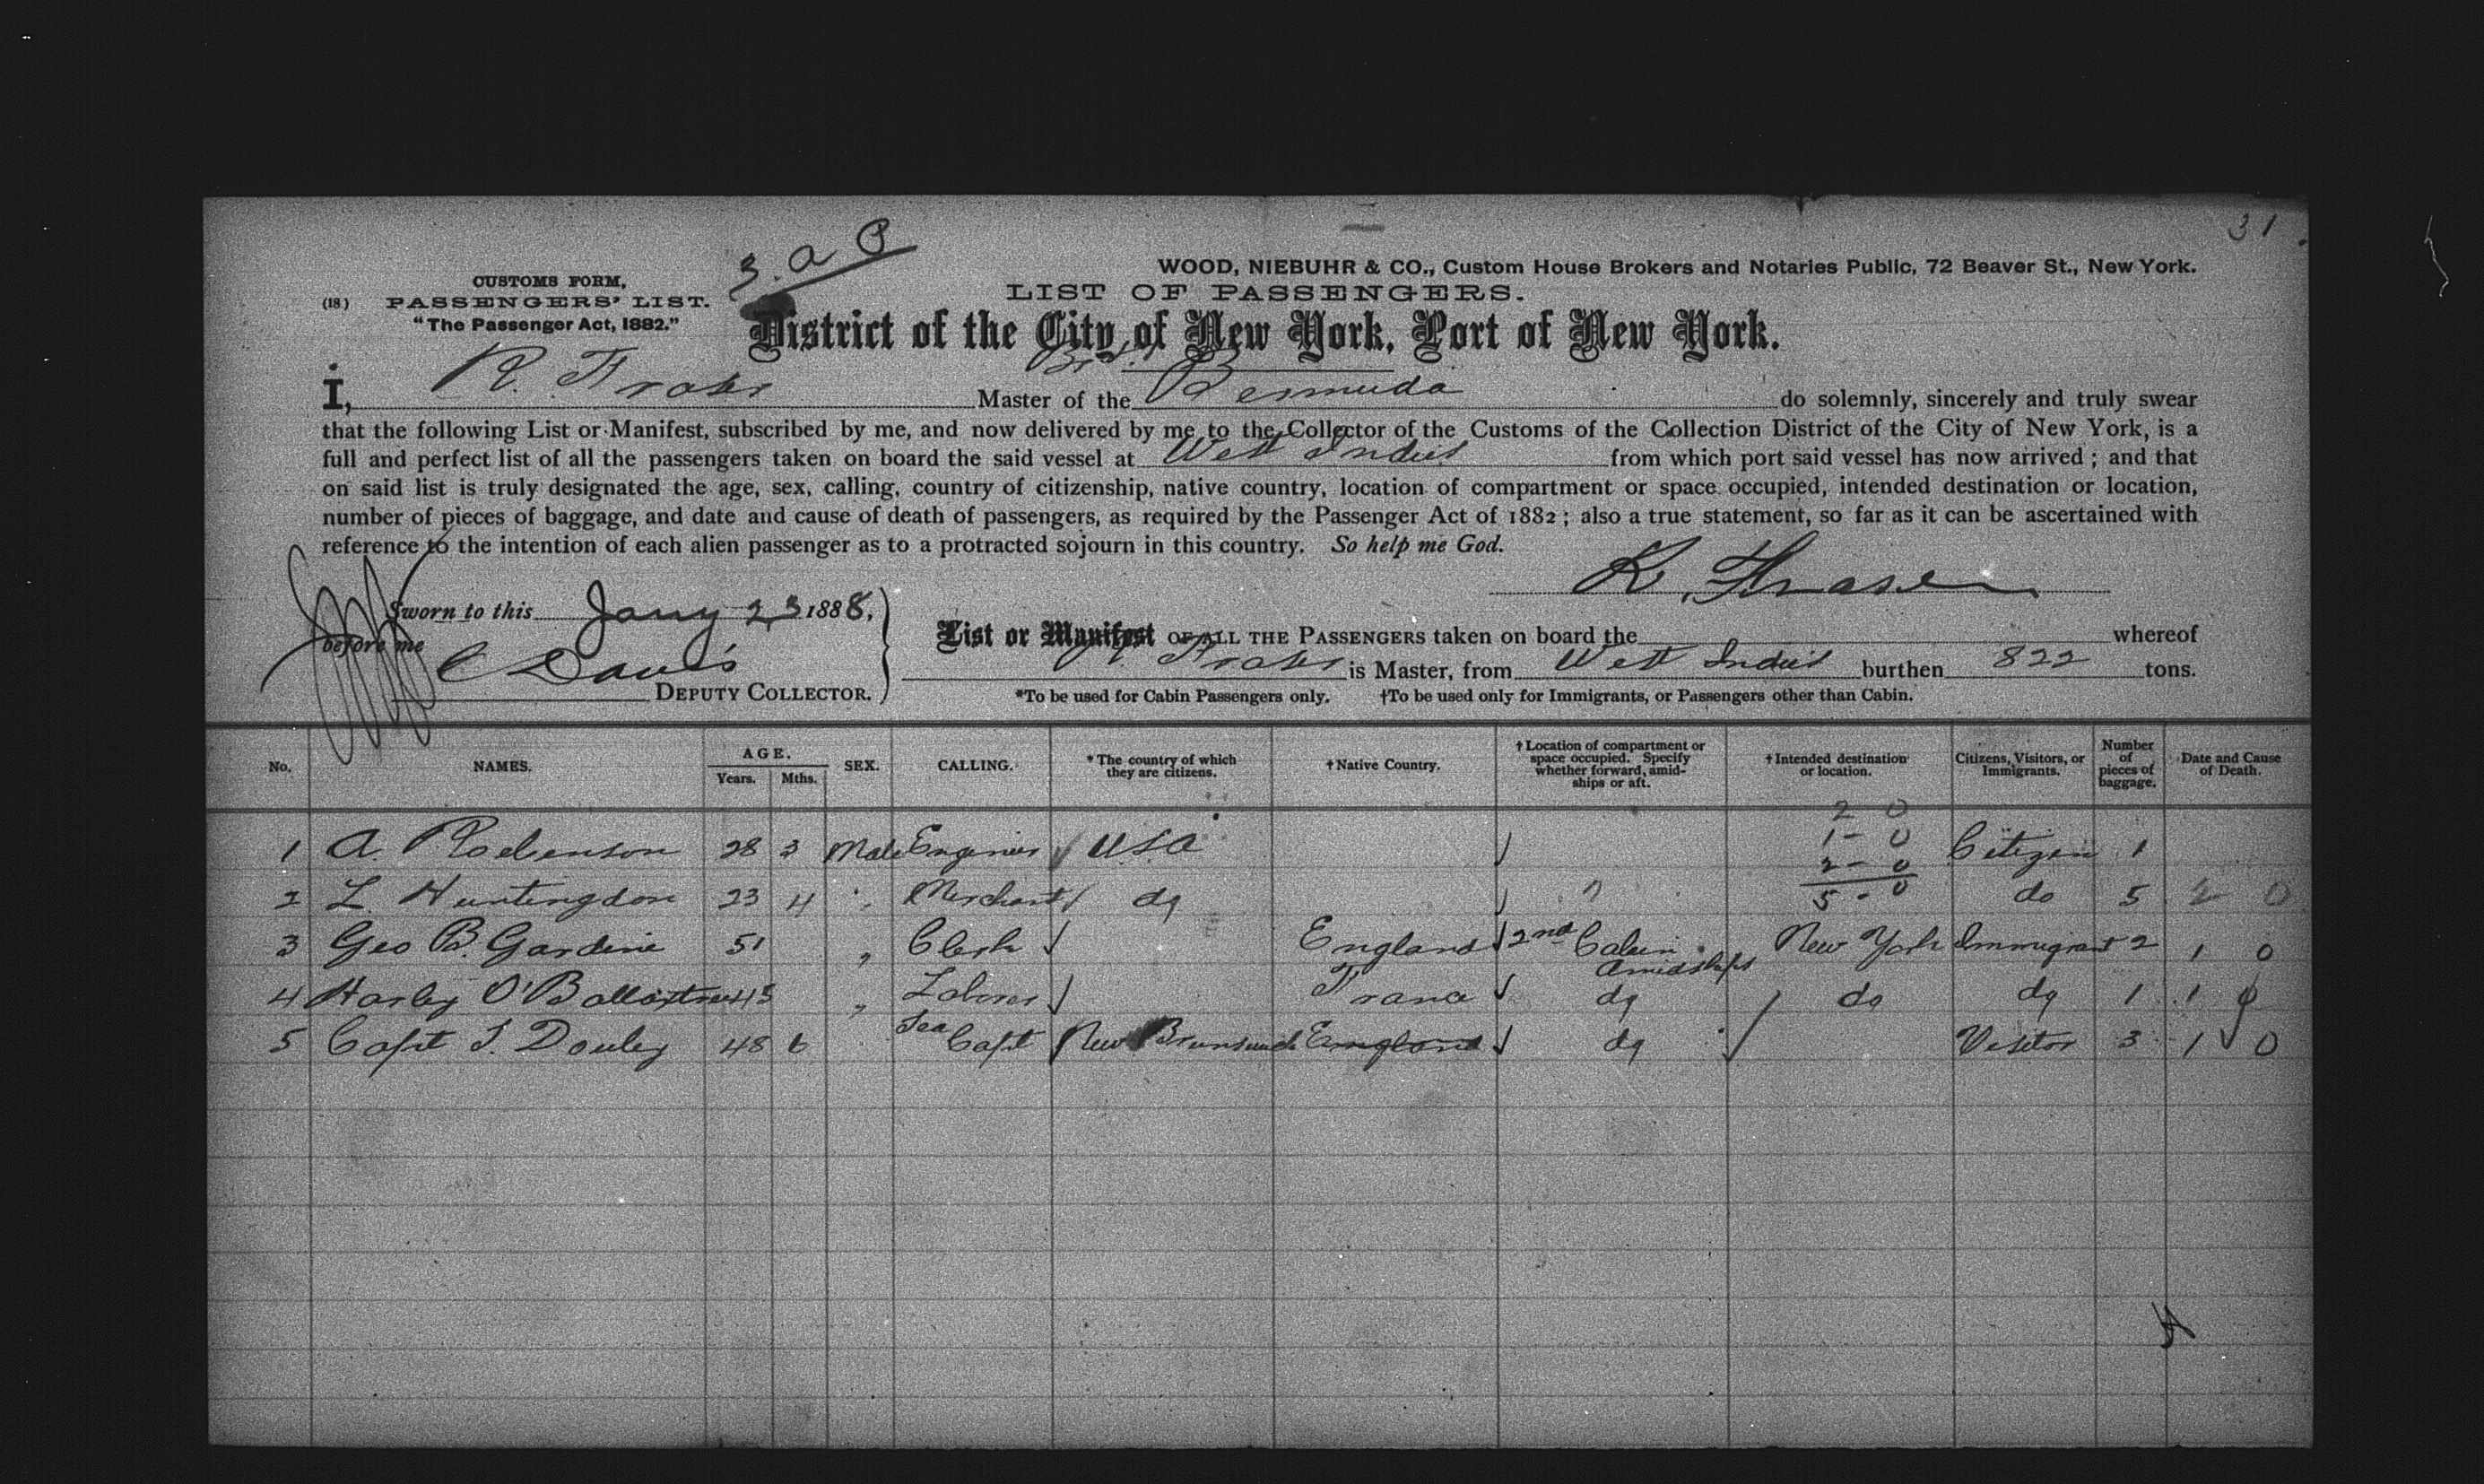 31
3. a 0
WOOD, NIEBUHR & CO., Custom House Brokers and Notaries Public, 72 Beaver St., New York.
CUSTOMS FORM,
(18) PASSENGERS' LIST.
"The Passenger Act, 1882."
LIST OF PASSENGERS.
District of the City of New York, Port of New York.
I, R. Fraser Master of the Bermuda do solemnly, sincerely and truly swear
that the following List or Manifest, subscribed by me, and now delivered by me to the Collector of the Customs of the Collection District of the City of New York, is a
full and perfect list of all the passengers taken on board the said vessel at West Indies from which port said vessel has now arrived ; and that
on said list is truly designated the age, sex, calling, country of citizenship, native country, location of compartment or space occupied, intended destination or location,
number of pieces of baggage, and date and cause of death of passengers, as required by the Passenger Act of 1882 ; also a true statement, so far as it can be ascertained with
reference to the intention of each alien passenger as to a protracted sojourn in this country. So help me God.
R. Fraser
Sworn to this Jany 23 1888,
before me
C Davis
DEPUTY COLLECTOR.
List or Manifest OF ALL THE PASSENGERS taken on board the whereof
R. Fraser is Master, from West Indies burthen 822 tons.
*To be used for Cabin Passengers only. †To be used only for Immigrants, or Passengers other than Cabin.
No. NAMES. AGE. Years. Mths. SEX. CALLING. *The country of which they are citizens. †Native Country. †Location of compartment or space occupied. Specify whether forward, amidships or aft. †Intended destination or location. Citizens, Visitors, or Immigrants. Number of pieces of baggage. Date and Cause of Death.
2 0
1 - 0
2 - 0
5 - 0
1 A. Robenson 28 3 Male Engineer USA Citizen 1
2 L. Huntingdon 23 4 " Merchant do " do 5 2 0
3 Geo B. Gardine 51 " Clerk England 2nd Cabin Amidships New York Immigrant 2 1 0
4 Harley 45 " Laborer do do do 1 1 0
5 Capt J. Douley 48 6 Sea Capt New Brunswick England do Visitor 3 1 0